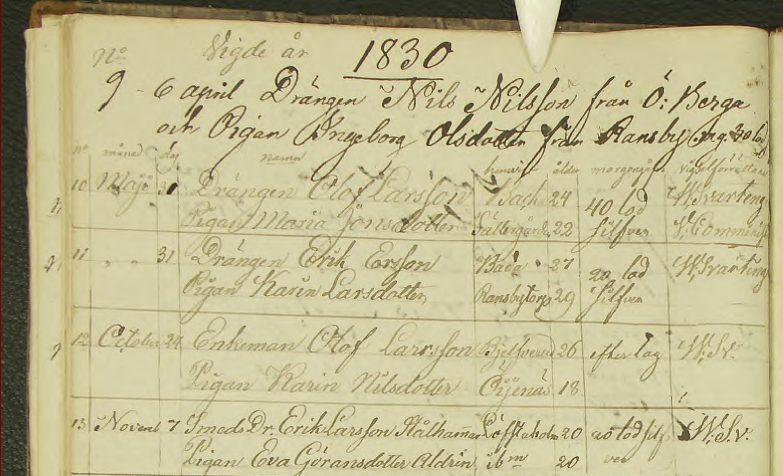 No Vigde år 1830
9 - 6 april Drängen Nils Nilsson från Ö: Berga
och Pigan Ingeborg Olsdotter från Ransby, mg. 30 lod
no månad dag namn hemvist ålder morgongåf. Vigselförrättare
10 Maji 31 Drängen Olof Larsson Backa 24 40 lod W. Svarteng
Pigan Maria Jönsdotter Sättergården 22 Silfver V. Comminist
11 " " 31 Drängen Erik Ersson Backa 27 20 lod W. Svarteng
Pigan Karin Larsdotter Ransbytorp 29 Silfver
12 October 24 Enkeman Olof Larsson 26 efter lag W. Sv.
Pigan Karin Nilsdotter Öijenäs 18
13 Novemb 7 Smeds Dr. Erik Larsson Stålhammer Löfstaholm 20 20 lod sil W. Sv.
Pigan Eva Göransdotter Aldrin ibm 20 ver